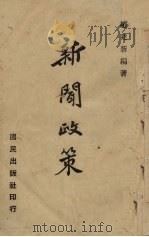 新聞政策
國民出版社印行